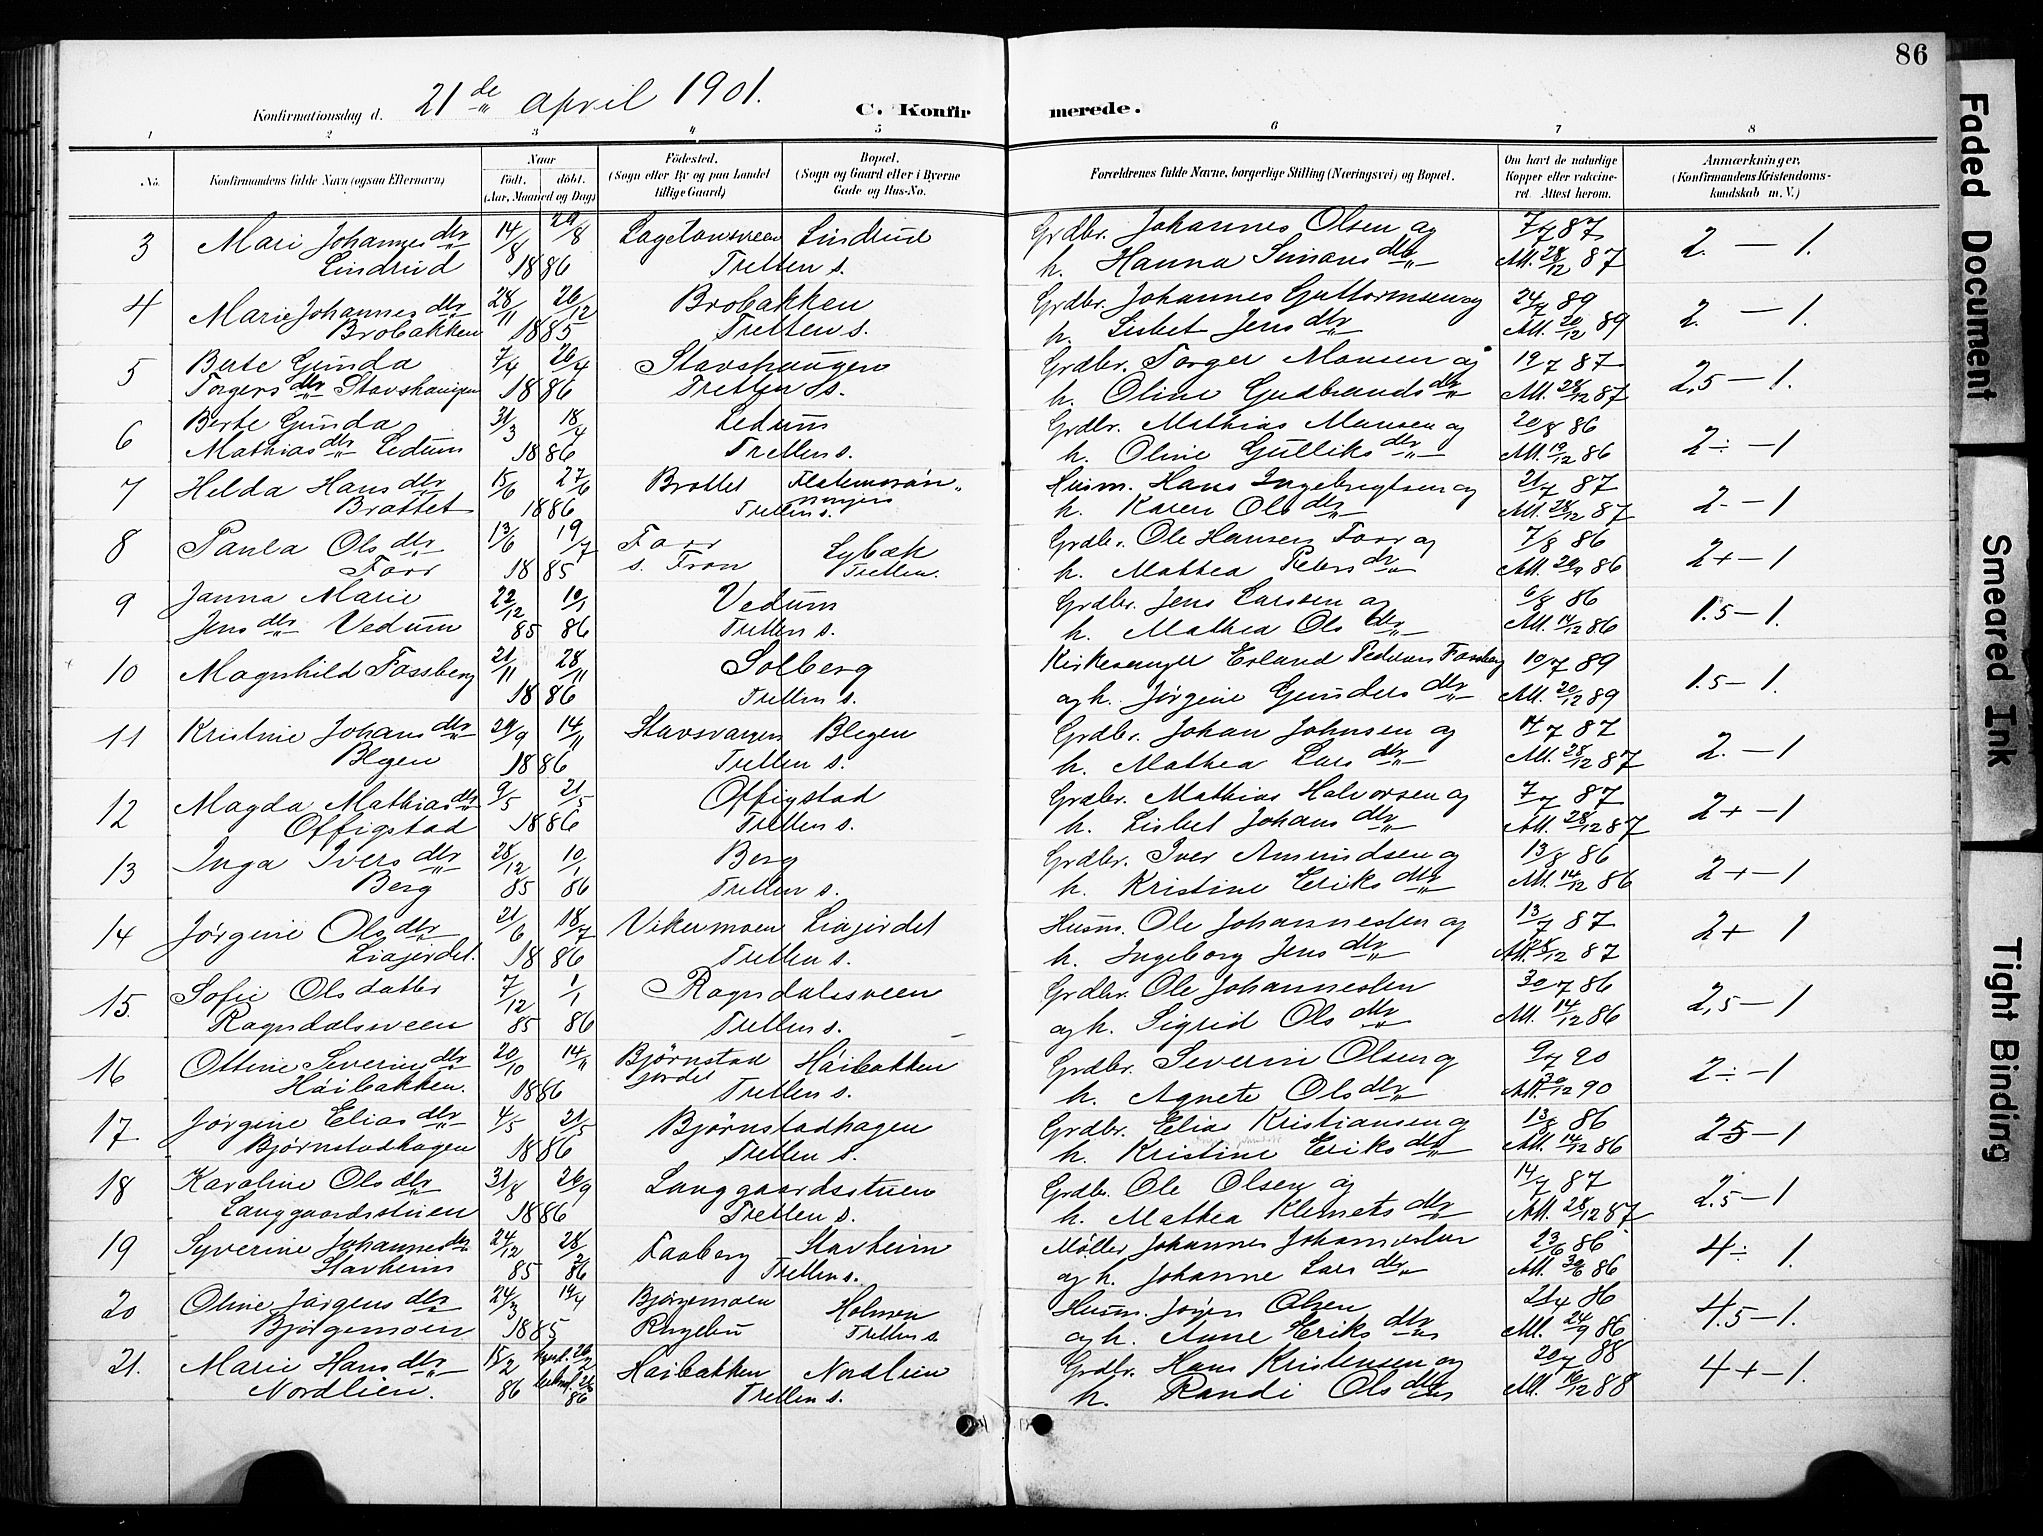 86
Konfirmationsdag d. 21de April 1901. C. Konfirmerede.
1 2 3 4 5 6 7 8
No. Konfirmandens fulde Navn (ogsaa Efternavn) Naar födt. döbt. (Aar, Maaned og Dag) Födested. (Sogn eller By og paa Landet tillige Gaard) Bopæl. (Sogn og Gaard eller i Byerne Gade og Hus-No. Forældrenes fulde Navne, borgerlige Stilling (Næringsvei) og Bopæl. Om havt de naturlige Kopper eller vakcineret. Attest herom. Anmærkninger, (Konfirmandens Kristendomskundskab m. V.)
3 Mari Johannesdtr 14/8 29/8 Lindrud Grdbr. Johannes Olsen og 7/7 87 2. — 1.
Lindrud 1886 Tretten s. h. Hanna Simonsdtr Att. 28/12 87
4 Marie Johannesdtr 28/11 26/12 Brobakken Grdbr. Johannes Guttormsen og 24/7 89 2. — 1.
Brobakken 1885 Tretten s. h. Lisbet Jensdtr Att. 20/12 89
5 Berte Gunda 7/4 26/4 Stavshaugen Grdbr. Torger Mansen og 19/7 87 2,5 — 1.
Torgersdtr Stavshaugen 1886 Tretten s. h. Oline Gudbrandsdtr Att. 28/12 87
6 Berte Gunda 31/3 18/4 Ledum Grdbr. Mathias Mansen og 20/8 86 2÷ — 1
Mathiasdtr Ledum 1886 Tretten s. h. Oline Gulliksdtr Att. 19/12 86
7 Helda Hansdtr 15/6 27/6 Brattet Husm. Hans Ingebregtsen og 21/7 87 2. — 1
Brattet 1886 Tretten s. h. Karen Olsdtr Att. 28/12 87
8 Paula Olsdtr 13/6 19/7 Foss Lybæk Grdbr. Ole Hansen Foss og 7/8 86 2+ — 1
Foss 1885 s. Fron Tretten. h. Mathea Petersdtr Att. 20/9 86
9 Janna Marie 22/12 10/1 Vedum Grdbr. Jens Larsen og 6/8 86 1.5 — 1.
Jensdtr Vedum 85 86 Tretten s. h. Mathea Olsdtr Att. 14/12 86
10 Magnhild Fossberg 21/11 28/11 Solberg Kirkesanger Erland Pedersen Fossberg 10/7 89 1.5 — 1.
1886 Tretten s. og h. Jørgine Gundersdtr Att. 20/12 89
11 Kristine Johansdtr 29/9 14/11 Blegen Grdbr. Johan Johnsen og 14/7 87 2. — 1
Blegen 1886 Tretten s. h. Mathea Larsdtr Att. 28/12 87
12 Magda Mathiasdtr 9/5 21/5 Offigstad Grdbr. Mathias Halvorsen og 7/7 87 2+ — 1
Offigstad 1886 Tretten s. h. Lisbet Johansdtr Att. 28/12 87
13 Inga Iversdtr 28/12 10/1 Berg Grdbr. Iver Amundsen og 13/8 86 2+ — 1
Berg 85 86 Tretten s. h. Kristine Eriksdtr Att. 14/12 86
14 Jørgine Olsdtr 21/6 18/7 Vikermoen Liajordet Husm. Ole Johannesen og 13/7 87 2+ 1
Liajordet. 1886 Tretten s. h. Ingeborg Jensdtr Att. 28/12 87
15. Sofie Olsdatter 7/12 1/1 Ragndalsveen Grdbr. Ole Johannesen 30/7 86 2,5 — 1
Ragndalsveen 85 86 Tretten s. og h. Sigrid Olsdtr Att. 14/12 86
16 Ottine Severinsdtr 20/10 14/11 Bjørnstad Håibakken Grdbr. Severin Olsen og 9/7 90 2÷ — 1
Håibakken. 1886 jordet Tretten s. h. Agnete Olsdtr Att. 30/12 90
17 Jørgine Eliasdtr 4/5 21/5 Bjørnstadhagen Grdbr. Elias Kristiansen og 13/8 86 2.5 — 1
Bjørnstadhagen 1886 Tretten s. h. Kristine Eriksdtr Att. 14/12 86
18 Karoline Olsdtr 31/8 26/9 Langgaardsstuen Grdbr. Ole Olsen og 14/7 87 2.5 — 1
Langgaardsstuen 1886 Tretten s. h. Mathea Klemetsdtr Att. 28/12 87
19 Syverine Johannesdtr 24/12 28/2 Faaberg Stavheim Møller Johannes Johannesen 23/6 86 4÷ 1.
Stavheim 85 86 Tretten s. og h. Johanne Larsdtr Att. 30/6 86
20 Oline Jørgensdtr 24/3 19/4 Bjørgemoen Holmen Husm. Jørgen Olsen 21/4 86 4.5 — 1.
Bjørgemoen 1885 Ringebu Tretten s. og h. Anne Eriksdtr Att. 24/9 86
21. Marie Hansdtr 15/2 Håibakken Nordlien Grdbr. Hans Kristensen og 20/7 88 4+ — 1.
Nordlien. 86 86 Tretten s. h. Randi Olsdtr Att. 16/12 88
Faded Document
Smeared Ink
Tight Binding